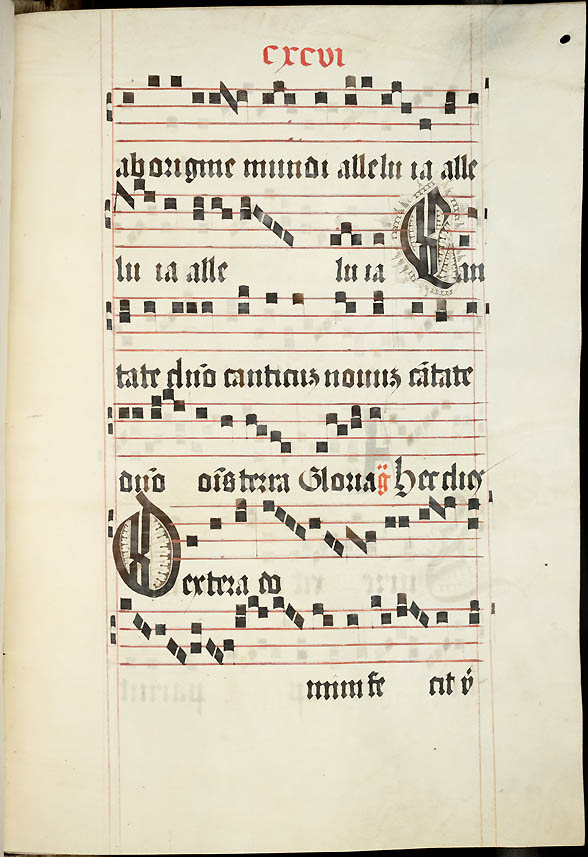 cxcvi
ab origine mundi allelu ia alle
lu ia alle lu ia Can
tate dn̄o canticuꝫ novuꝫ cātate
dn̄o oīs terra Gloria
Dextera do
mini fe cit v̄